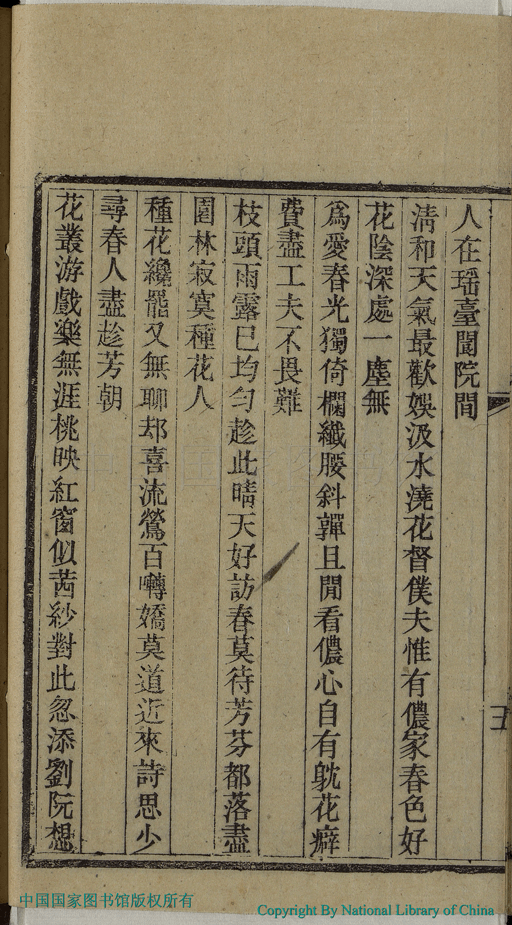 人在瑶臺閬院閒
清和天氣最歡娛汲水澆花督僕夫惟有儂家春色好
花陰深處一塵無
爲愛春光獨倚欄纖腰斜嚲且閒看儂心自有躭花癖
費盡工夫不畏難
枝頭雨露已均勻趁此晴天好訪春莫待芳芬都落盡
園林寂寞種花人
種花纔罷又無聊却喜流鶯百囀嬌莫道近來詩思少
尋春人盡趁芳朝
花叢游戲樂無涯桃映紅窗似茜紗對此忽添劉阮想
五
中国国家图书馆版权所有
Copyright By National Library of China